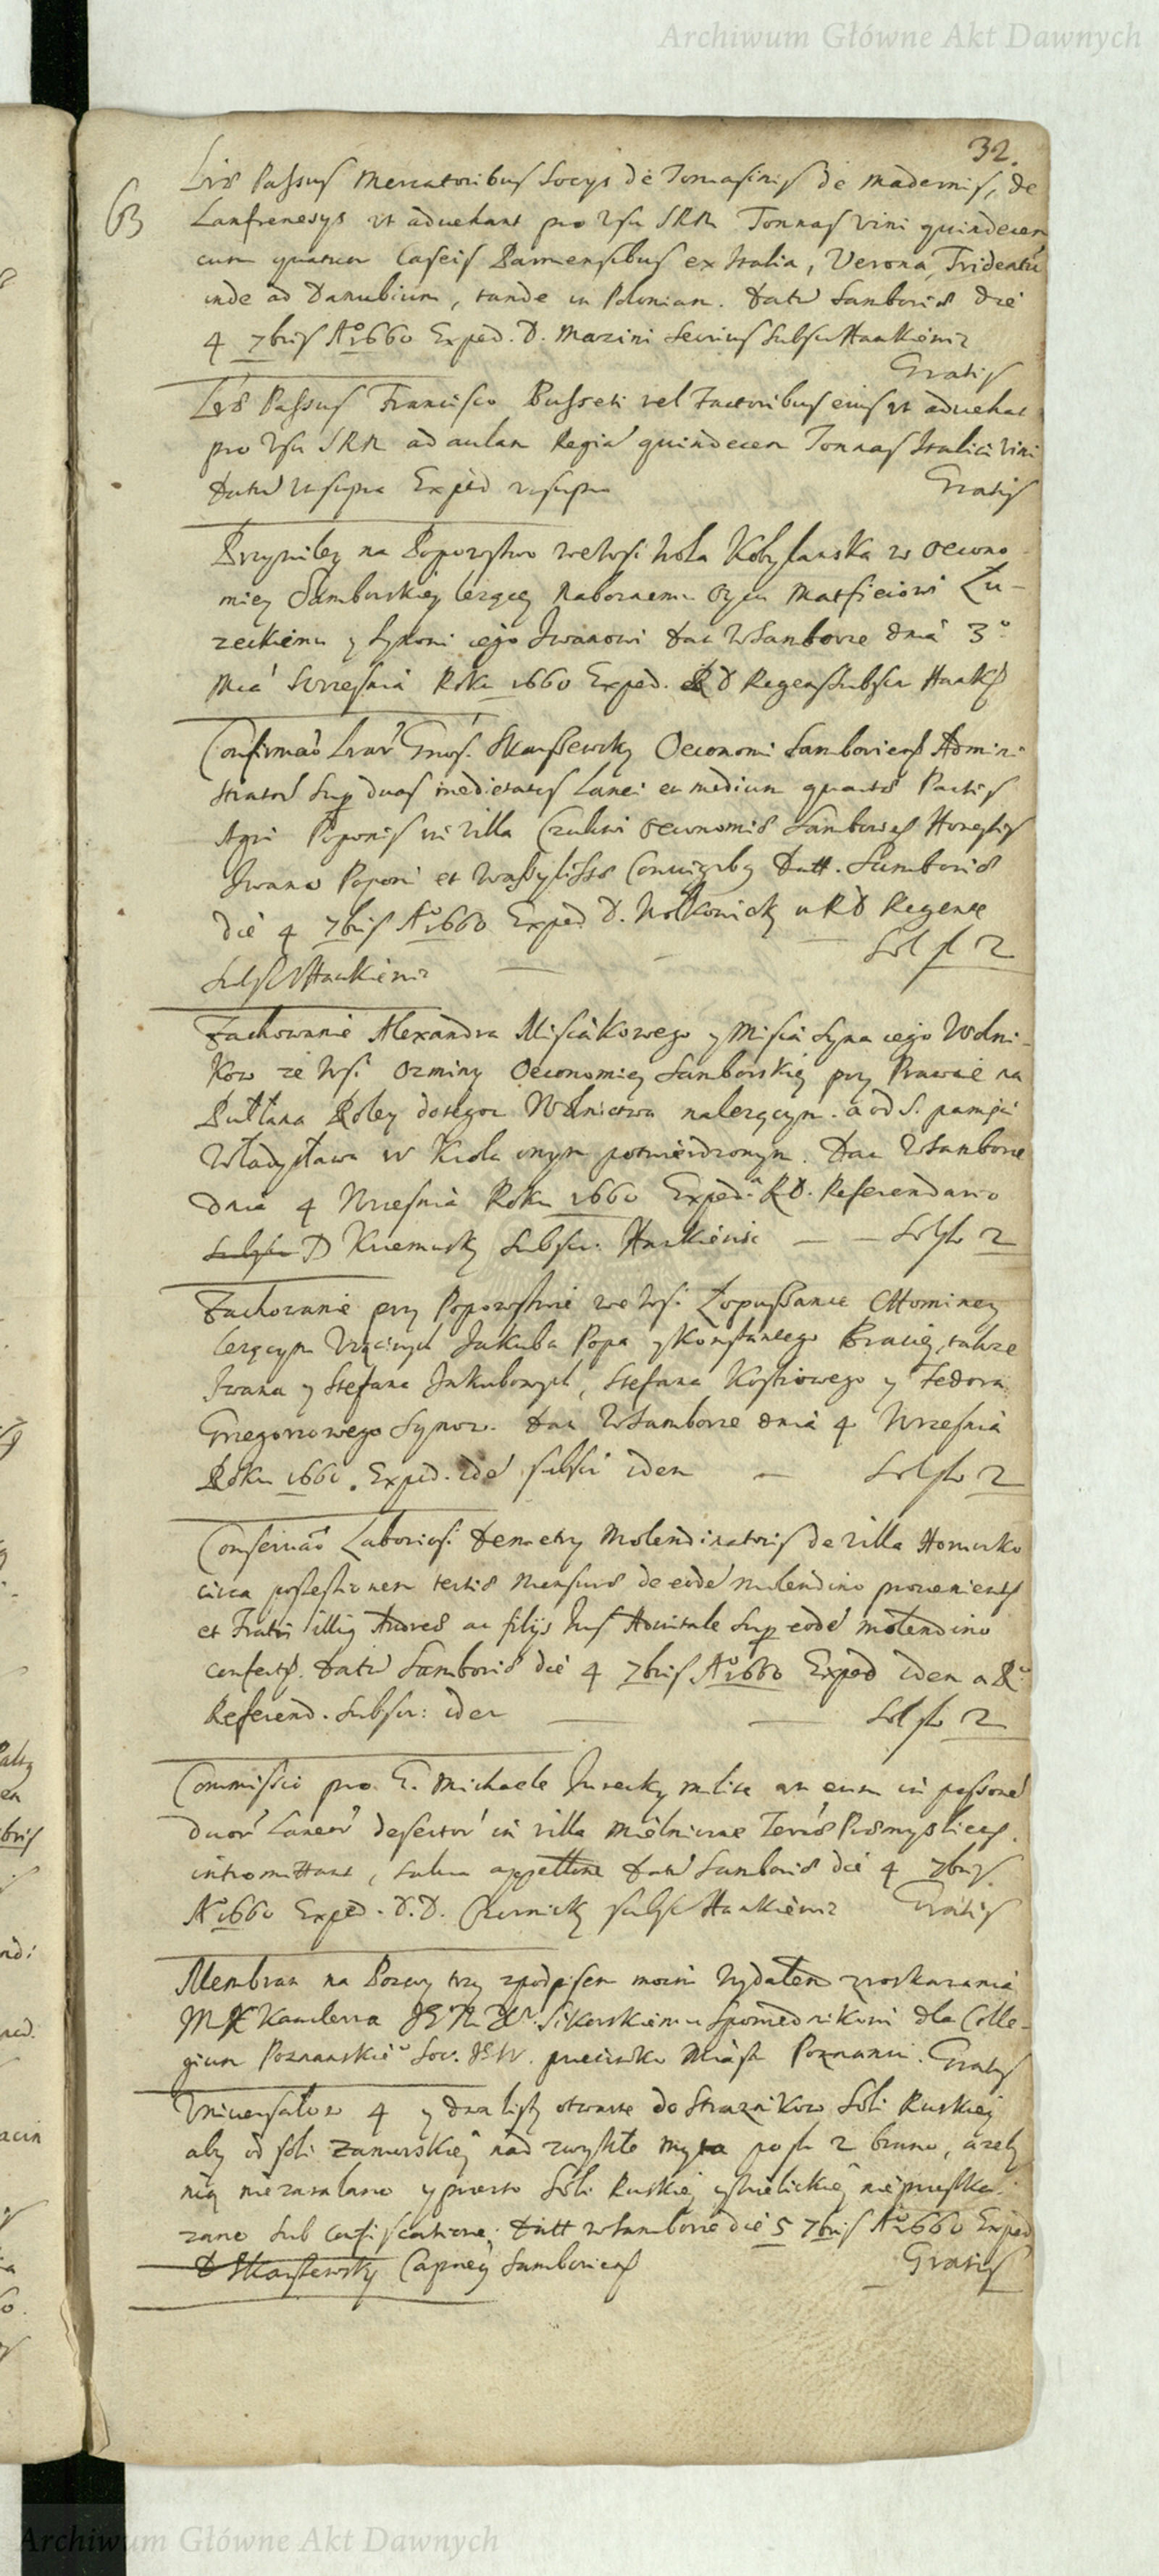 Archiwum Główne Akt Dawnych
32.
63
Lrae Passus Mercatoribus Socys de Tomasinis de Madernis, de
Lanfrenesys ut aduehant pro usu SRM Tonnas vini quindecem
cum quatuor Caseis Parmensibus ex Italia, Verona, Tridentu
inde ad Danubium, tande in Poloniam. Datu Samboriae die
4 7bris Ao 1660 Exped. D. Marini Subscr Hankiewicz
Gratis
Lrae Passus Francisco Busseti vel Factoribus eius ut aduehat
pro usu SRM ad aulam Regia quindecem Tonnas Italici vini
Datu ut supra Exped ut supra Gratis
Przywiley na Popowstwo we Wsi Wola Koblanska w Oecono
miey Samborskiey lezącey Nabożnemu Oycu Matfieiowi Żu-
reckiemu y Synowi iego Iwanowi Dat w Samborze dnia 3o
Mca Września Roku 1660 Exped. R D Regens Subscr Hankz
Confirmao Lrar Gnosi Skarszewsky Oeconomi Samboriens Admini
stratoris Sup duas medietates Lanei et medium quartae Partis
Agri Poponis in villa Czukwi Oeconomiae Samboriens Honestis
Iwano Poponi et Wassylissae Coniugibus Datt. Samboriae
die 4 7bris Ao 1660 Exped D. Wolkowicky a RD Regente
Subscr Hankiewicz Sol fl 2
Zachowanie Alexandra Misiakowego y Misia Syna iego Wolni-
kow ze Wsi Ozminy Oeconomiey Samborskiey przy Prawie na
Pułłana Roley dotego Wolnictwa należącym. a od S. pamięci
Władysława IV Krola onym potwierdzonym. Dat w Samborze
dnia 4 Września Roku 1660 Exped. a RD. Referendario
Subscr D Krzemusky Subscr. Hankiewicz Sol fl 2
Zachowanie przy Popowstwie we Wsi Łopuszance Chominey
leżącym Uczciwych Jakuba Popa y Konstantego Braciey, także
Iwana y Stefana Jakubowych, Stefana Kostiowego y Fedora
Grzegorzowego Synow. Dat w Samborze dnia 4 Września
Roku 1660. Exped. ide subscr idem Sol fl 2
Conseruao Laboriosi Demetry Molendinatoris de villa
circa possessionem tertiae Mensurae de eode Molendino prouenients
et Fratri illius Andreae ac filys Ius Aduitale Sup eode molendino
confert. Datu Samboriae die 4 7bris Ao 1660 Exped idem a R
Referend. Subscr: idem Sol fl 2
Commissio pro G. Michaele milite ut eum in possone
duor Laneor desertor in villa Mielniczne Terrae Praemysliens.
intromittant, salua appellone Datu Samboriae die 4 7bris.
Ao 1660 Exped. D.D. Czernicky subscr Hankiewicz Gratis
Membran na Pozwy trzy z podpisem moim wydałem z roskazania
Kanclerza Sikorskiemu Spowiednikowi dla Colle-
gium Poznanskie Soc. przeciwko Miastu Poznaniu. Gratis
Uniwersałow 4 y dwa listy otwarte do Strażnikow Soli Ruskiey
aby od soli Zamorskiey nad zwykłe myta po fl 2 brano, ażeby
nią niezawalano y przeto Soli Ruskiey y Wielickiey nie przeszka
zano sub confiscatione. Datt w Samborze die 5 7bris Ao 1660 Exped
D Skarszewsky Capney Samboriens Gratis
Archiwum Główne Akt Dawnych